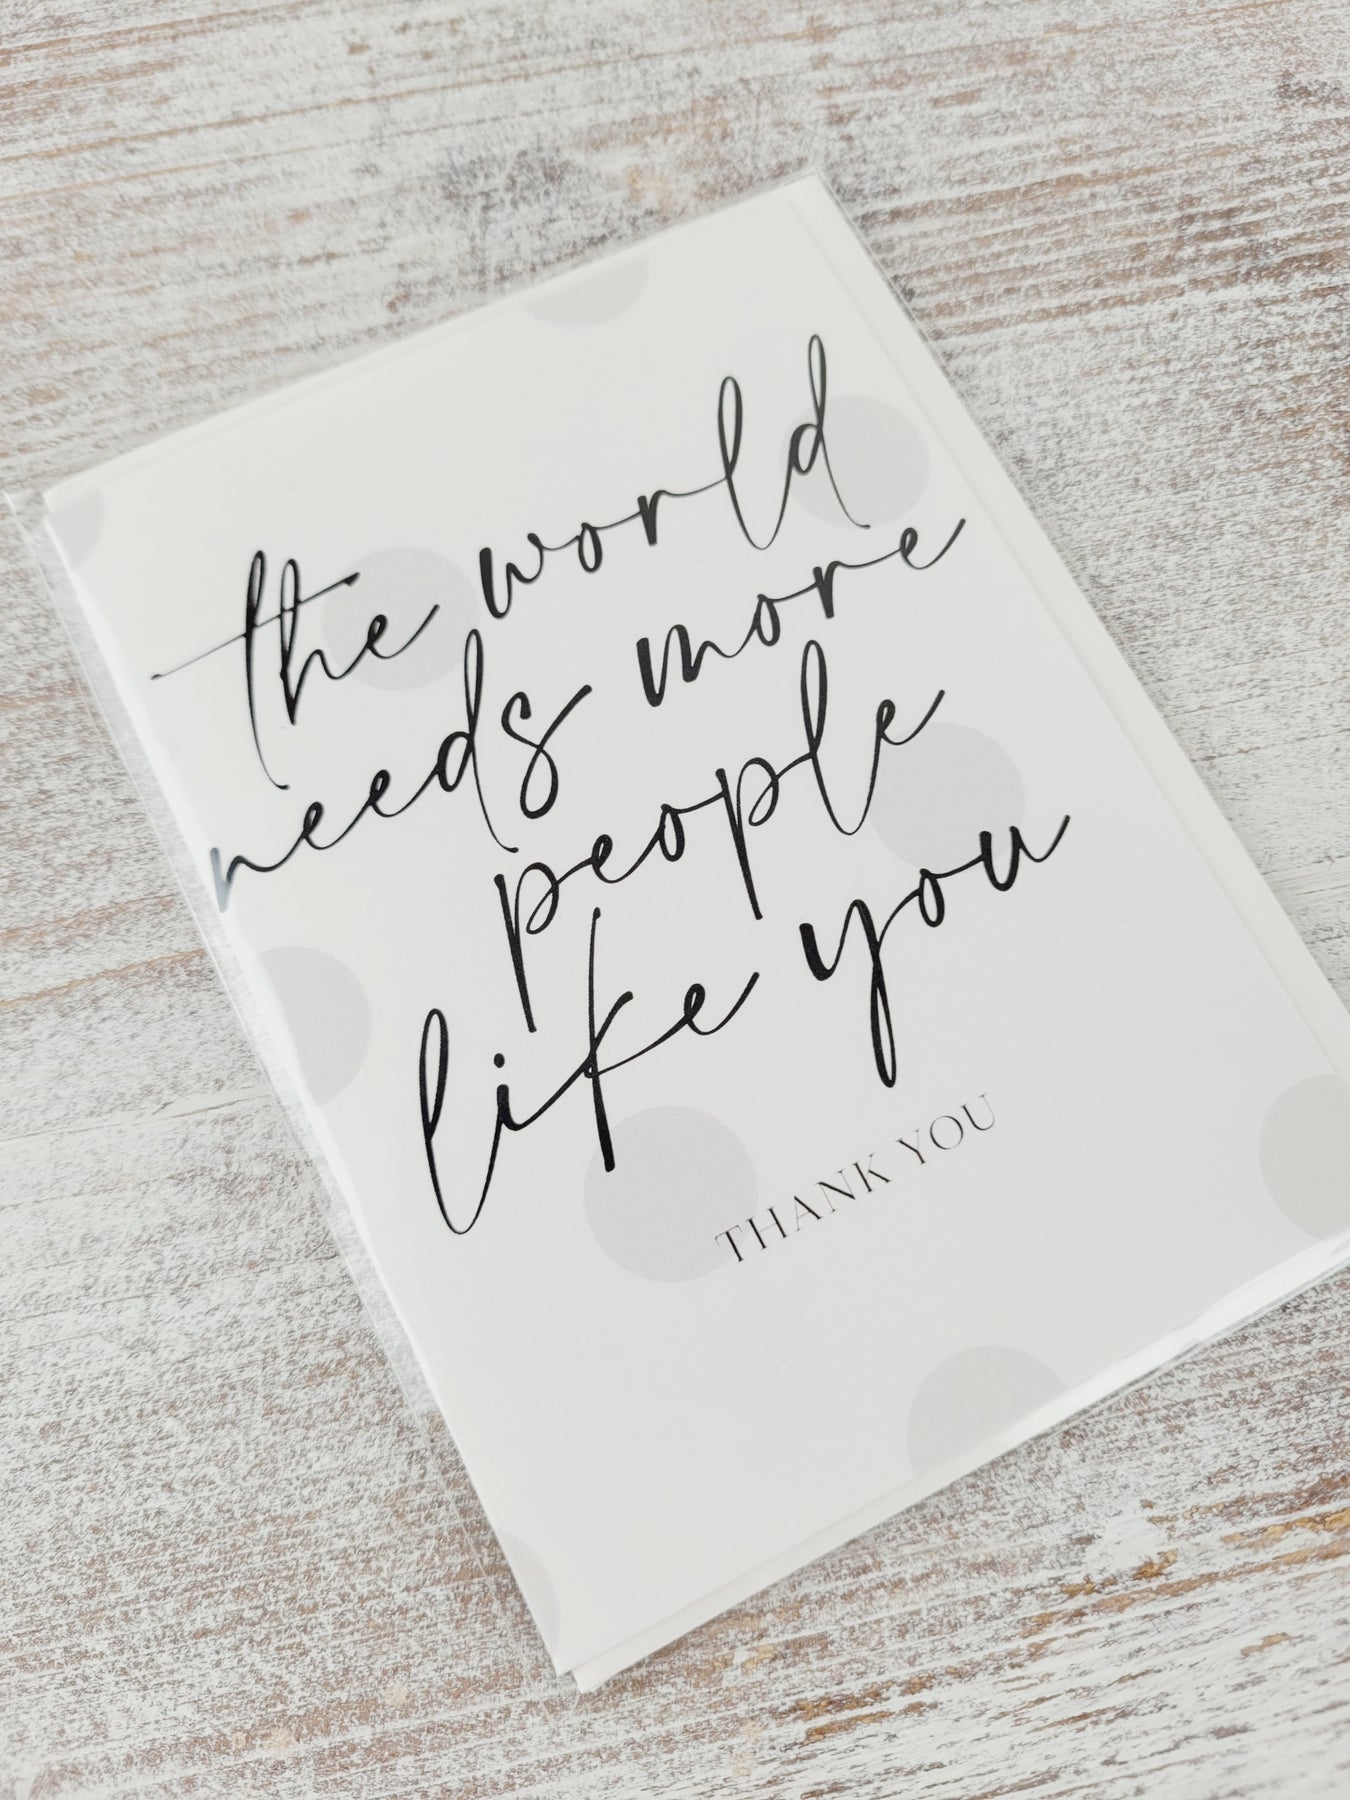 the world
needs more
people
like you
THANK YOU